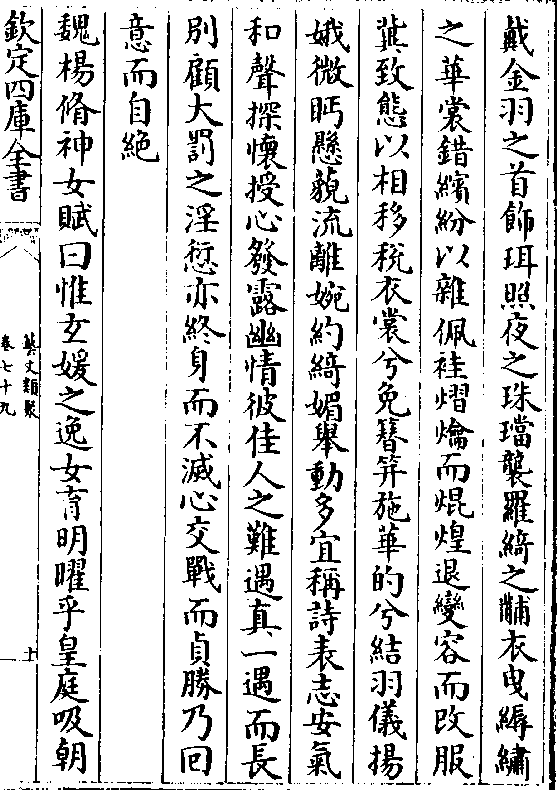 戴金羽之首飾珥照夜之珠璫襲羅綺之黼衣曳縟繡
之華裳錯繽紛以雜佩袿熠爚而焜煌退變容而改服
兾致態以相移稅衣裳兮免簪笄施華的兮結羽儀揚
娥微眄懸藐流離婉約綺媚舉動多宜稱詩表志安氣
和聲探懷授心發露幽情彼佳人之難遇真一遇而長
别顧大罰之淫愆亦終身而不滅心交戰而貞勝乃回
意而自絶
魏楊脩神女賦曰惟玄媛之逸女育明曜乎皇庭吸朝
欽定四庫全書
藝文類聚
卷七十九
十一